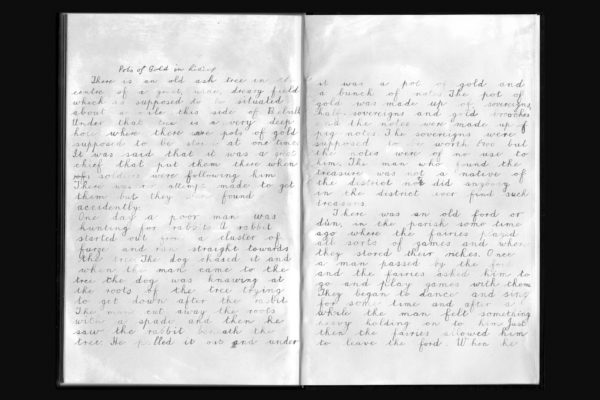 Pots of Gold in hiding
There is an old ash tree in the
centre of a great, wide, dreary field
which is supposed to be situated
about a mile this side of
Under that tree is a very deep
hole where there were pots of gold
supposed to be stored at one time.
It was said that it was a great
chief that put them there when
soldiers were following him
There was an attempt made to get
them but they were found
accidently.
One day a poor man was
hunting for rabbits. A rabbit
started out from a cluster of
furze and ran straight towards
the tree. The dog chased it and
when the man came to the
tree the dog was knawing at
the roots of the tree trying
to get down after the rabbit.
The man cut away the roots
with a spade and then he
saw the rabbit beneath the
tree. He pulled it out and under
it was a pot of gold and
a bunch of notes. The pot of
gold was made up of sovereigns,
half sovereigns and gold broaches
and the notes were made up of
pig notes. The sovereigns were
supposed to be worth but
the notes were of no use to
him. The man who found the
treasure was not a native of
the district nor did anybody
in the district ever find such
treasure.
There was an old ford or
dún, in the parish some time
ago where the fairies played
all sorts of games and where
they stored their riches. Once
a man passed by the ford
and the fairies asked him to
go and play games with them
They began to dance and sing
for some time and after a
while the man felt something
heavy holding on to him. Just
then the fairies allowed him
to leave the ford. When he